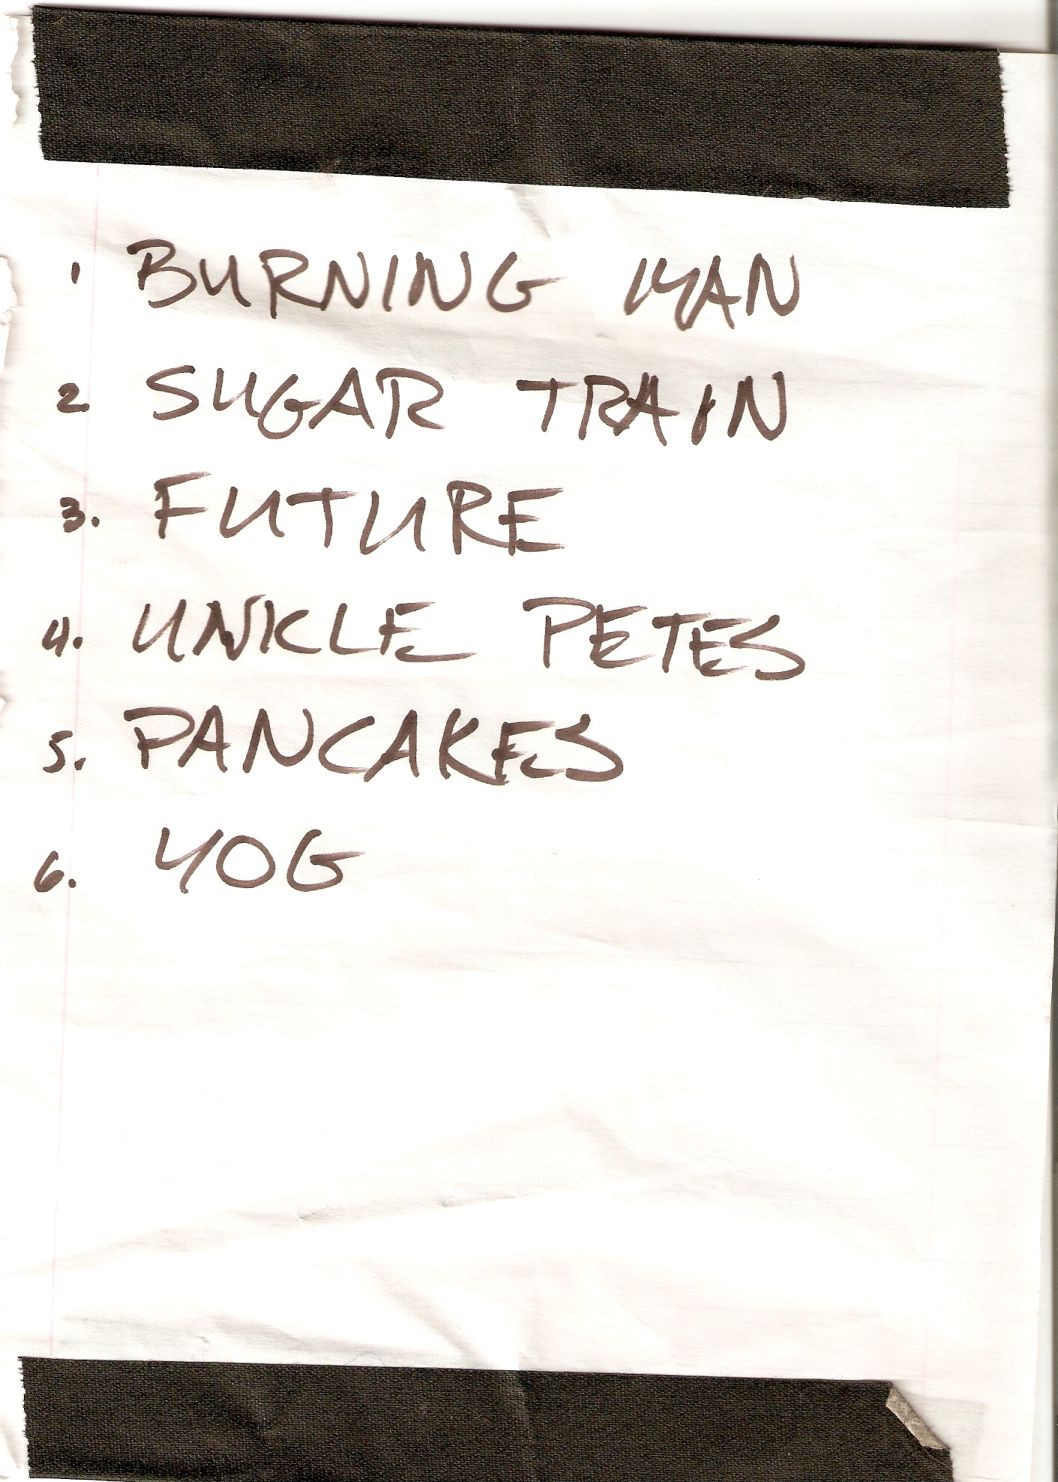 1 BURNING MAN
2 SUGAR TRAIN
3. FUTURE
4. UNKLE PETES
5. PANCAKES
6. YOG